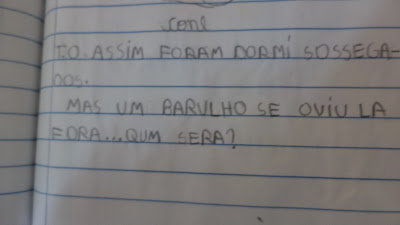 TO. ASSIM FORAM DORMI SOSSEGA-
DOS.
MAS UM BARULHO SE OVIU LA
FORA... QUM SERA?